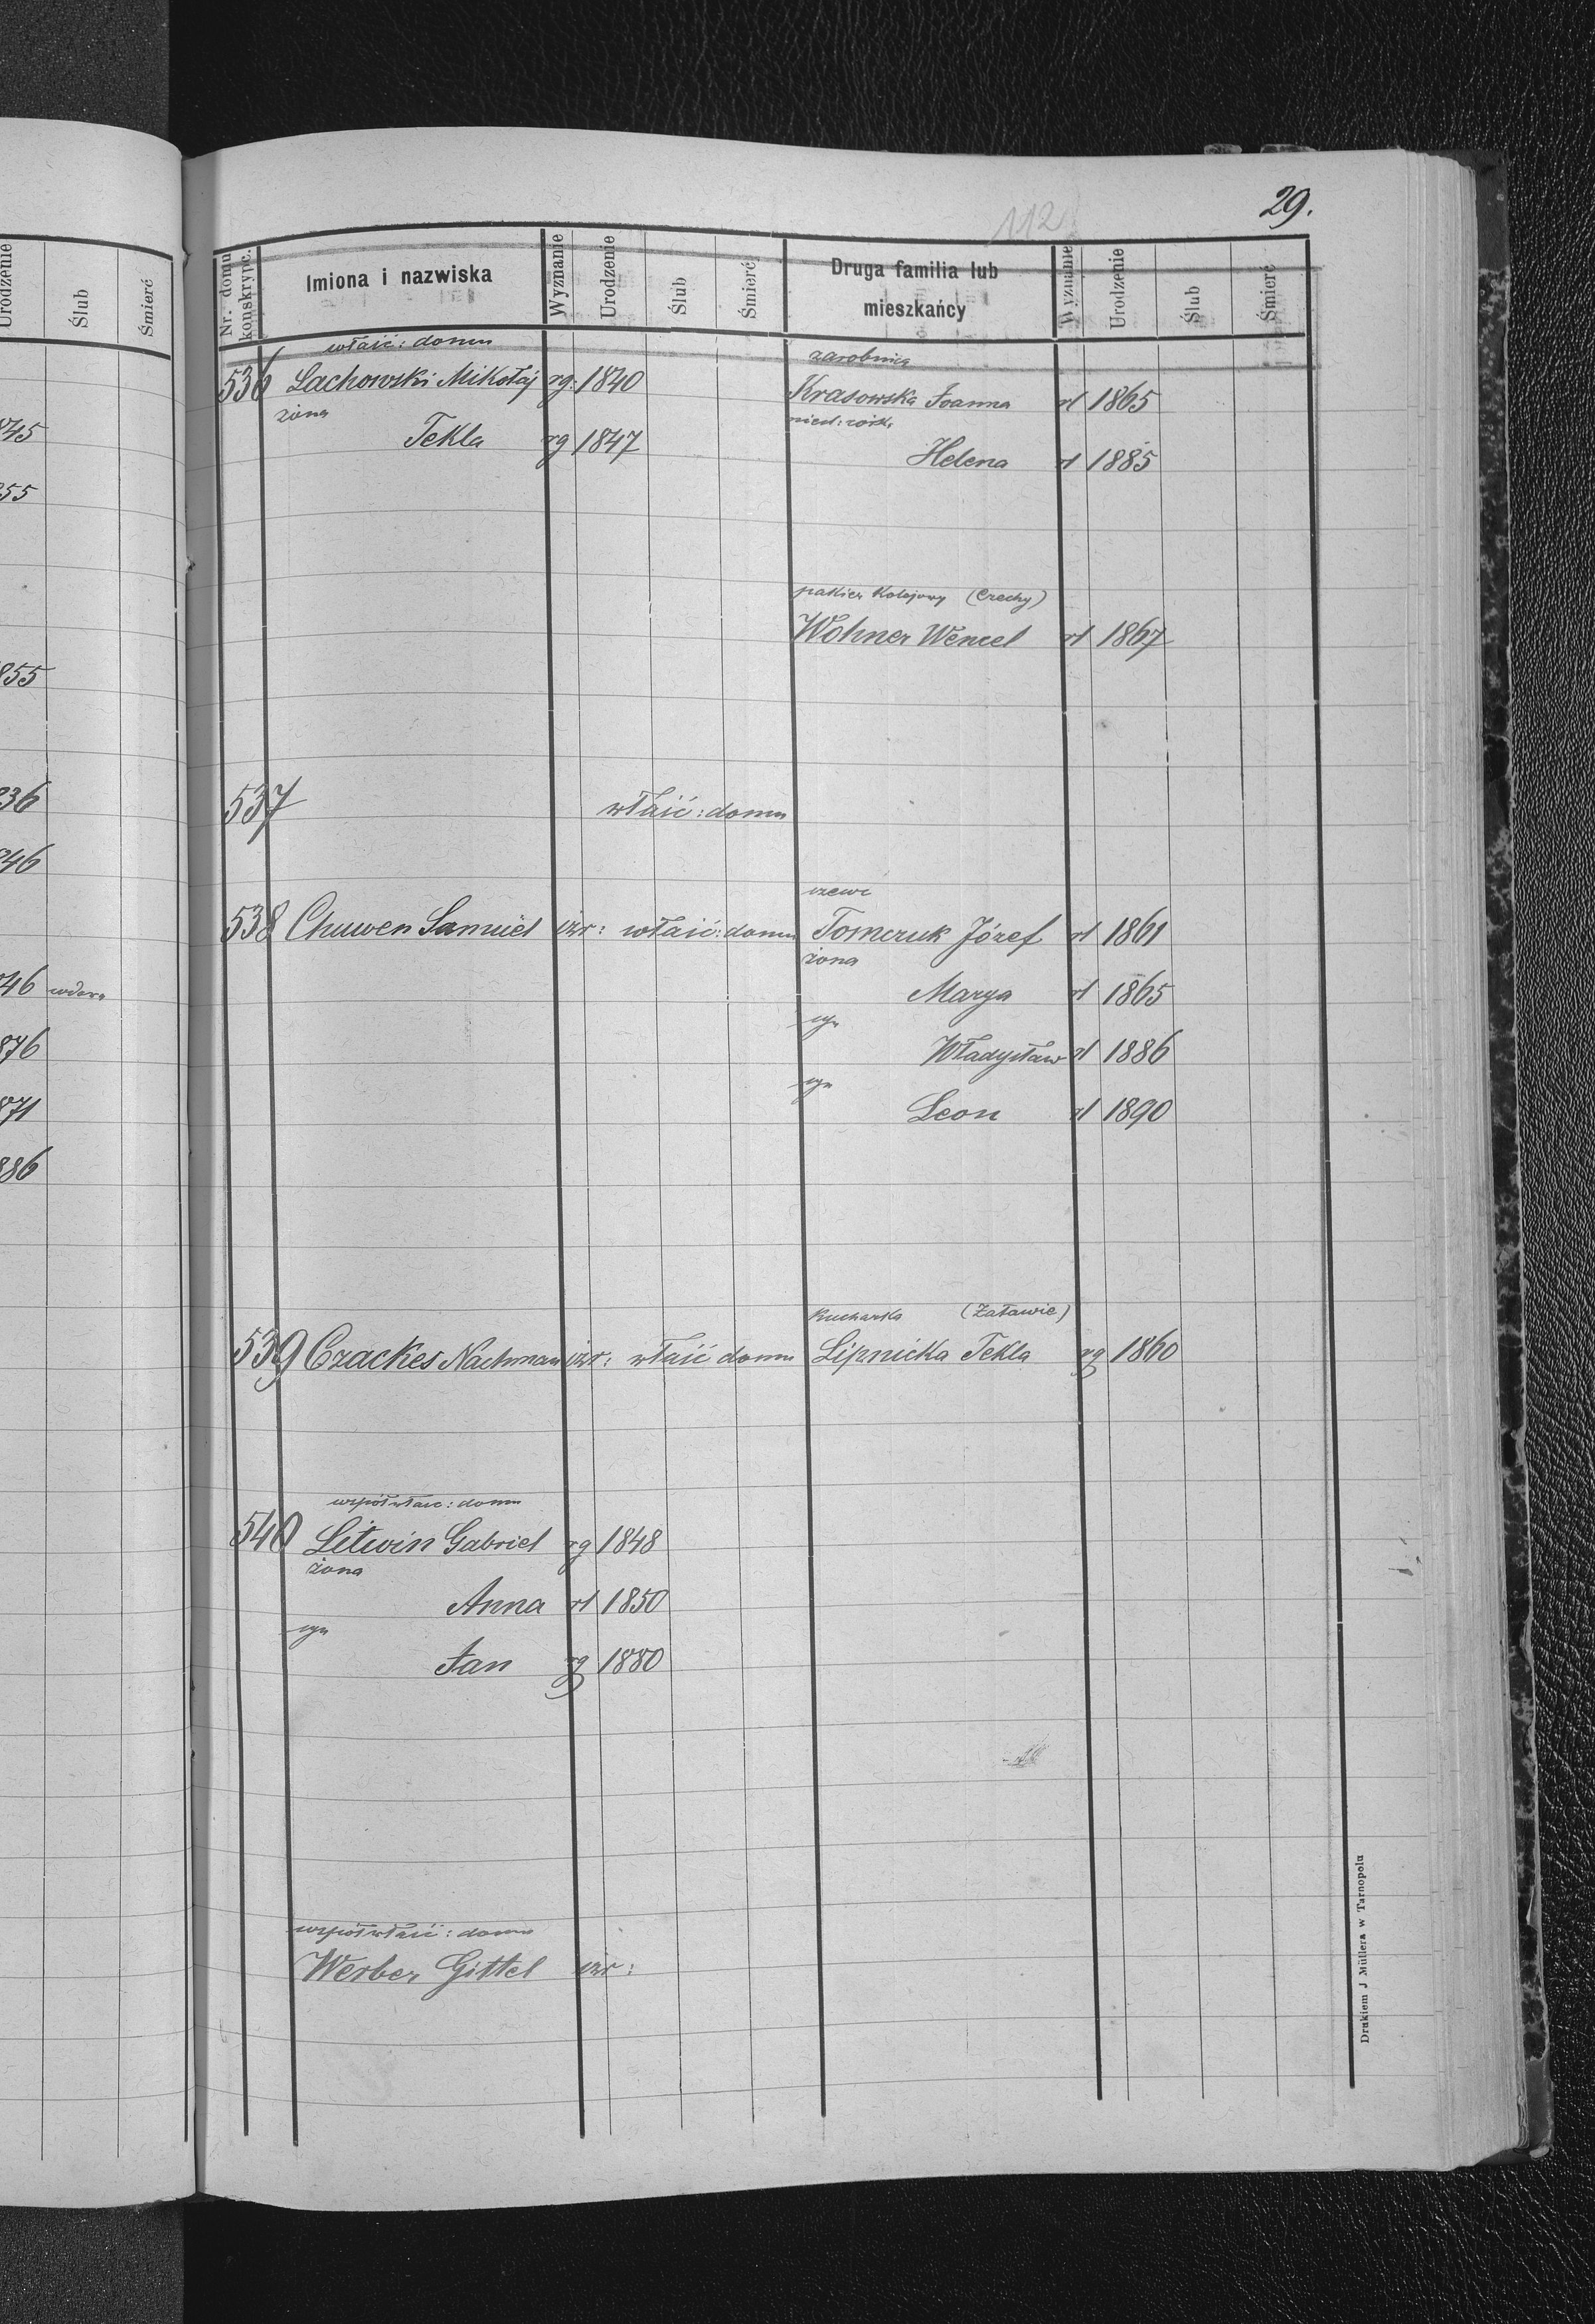 Urodzenie
Ślub
Śmierć
845
855
855
836
846
846 wdowa
876
871
886
112
29.
Nr. domu konskrypc.
Imiona i nazwiska
Wyznanie
Urodzenie
Ślub
Śmierć
Druga familia lub mieszkańcy
Wyznanie
Urodzenie
Ślub
Śmierć
właść: domu
zarobnica
536 Lachowski Mikołaj rg. 1840
Krasowska Joanna rł 1865
żona
Tekla rg 1847
Helena rł 1885
pakier kolejowy (Czechy)
Wohner Wencel rł 1867
537 właść: domu
szewc
538 Chuwen Samuel izr: właść: domu Tomczuk Józef rł 1861
żona
Marya rł 1865
syn
Władysław rł 1886
syn
Leon rł 1890
Kucharka (Załawie)
539 Czackes Nachman izr: właść domu Lipnicka Tekla rg 1860
współwłaść: domu
540 Litwin Gabriel rg 1848
żona
Anna rł 1850
syn
Jan rg 1880
współwłaść: domu
Werber Gittel izr:
Drukiem J Müllera w Tarnopolu